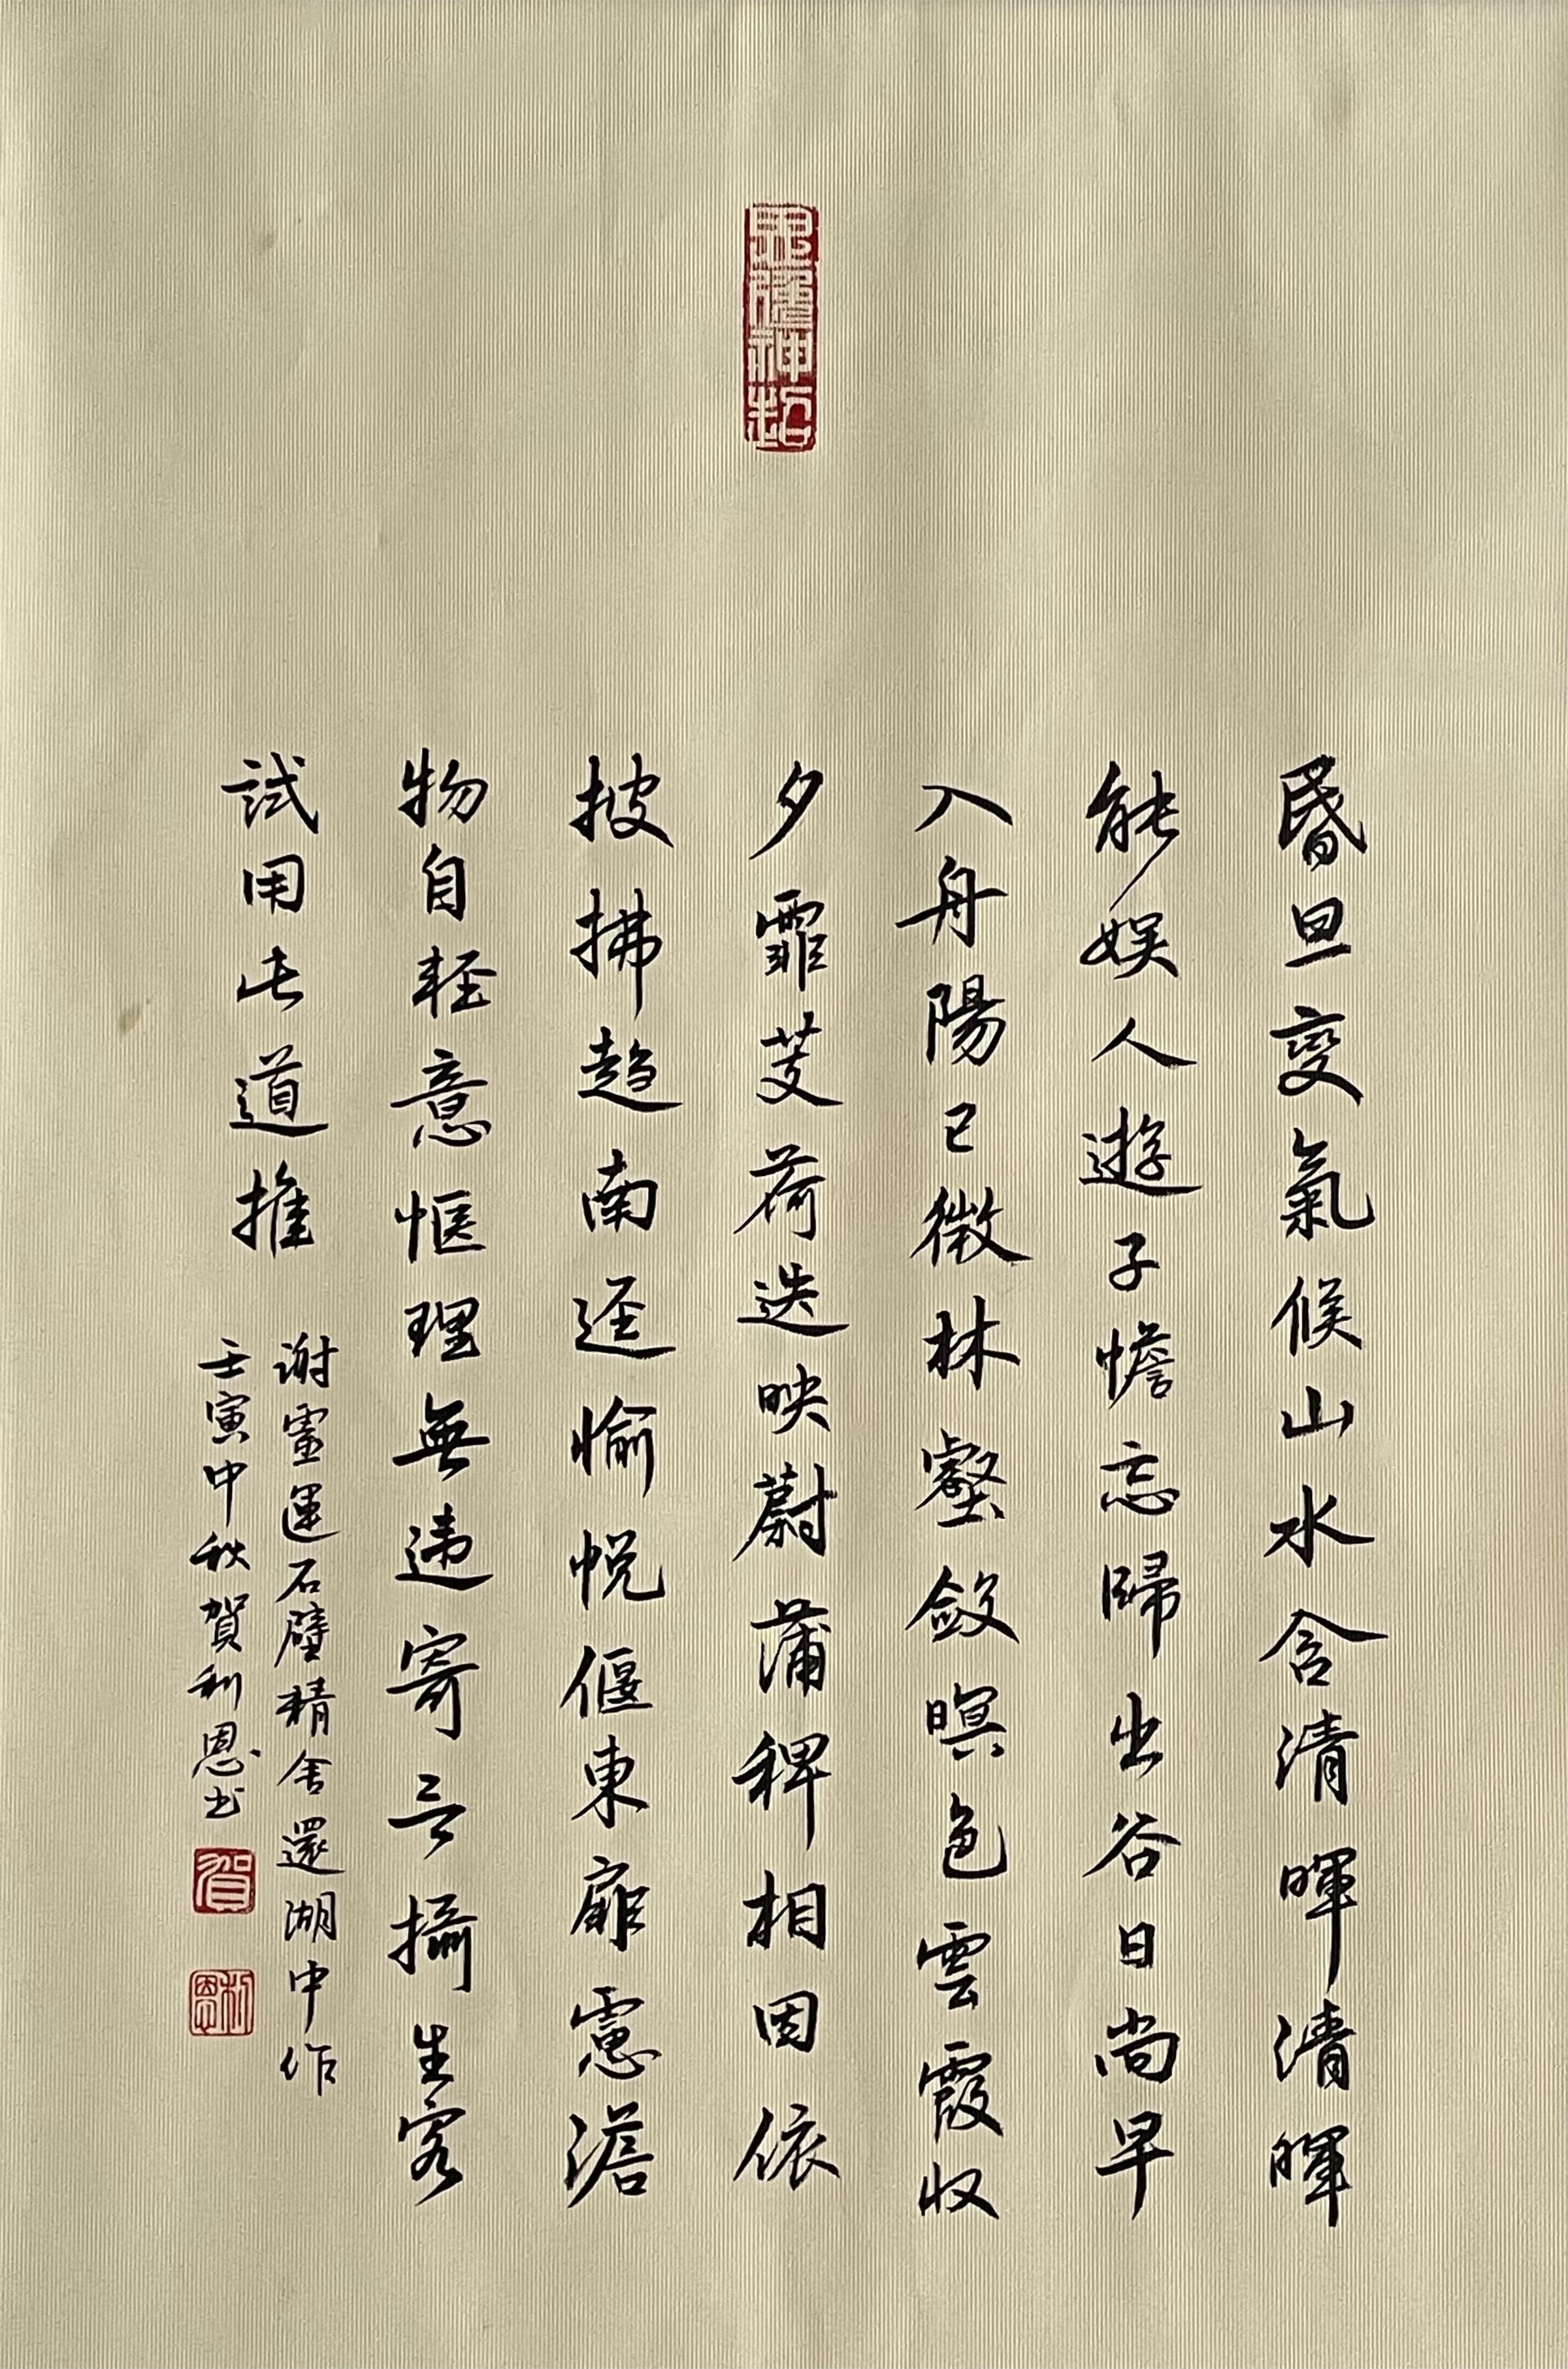 昏旦變氣候山水含清暉清暉
能娛人遊子憺忘歸出谷日尚早
入舟陽已微林壑斂暝色雲霞收
夕霏芰荷迭映蔚蒲稗相因依
披拂趨南逕愉悅偃東扉慮澹
物自輕意愜理無違寄言攝生客
試用此道推
謝靈運石壁精舍還湖中作
壬寅中秋賀利恩书
賀
利恩